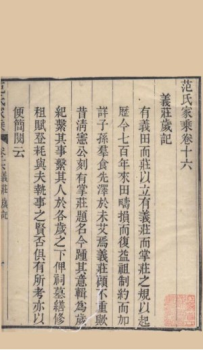 范氏家乘卷十六
義莊歲記
有義田而莊以立有義莊而掌莊之規以起
歷今七百年來田疇損而復益租制約而加
詳子孫羣食先澤於未艾焉義莊顧不重歟
昔清憲公刻有掌莊題名今踵其意輯為歲
紀繫其事繫其人於各歲之下俾祠墓繕修
租賦登耗與夫執事之賢否俱有所考亦以
便簡閱云